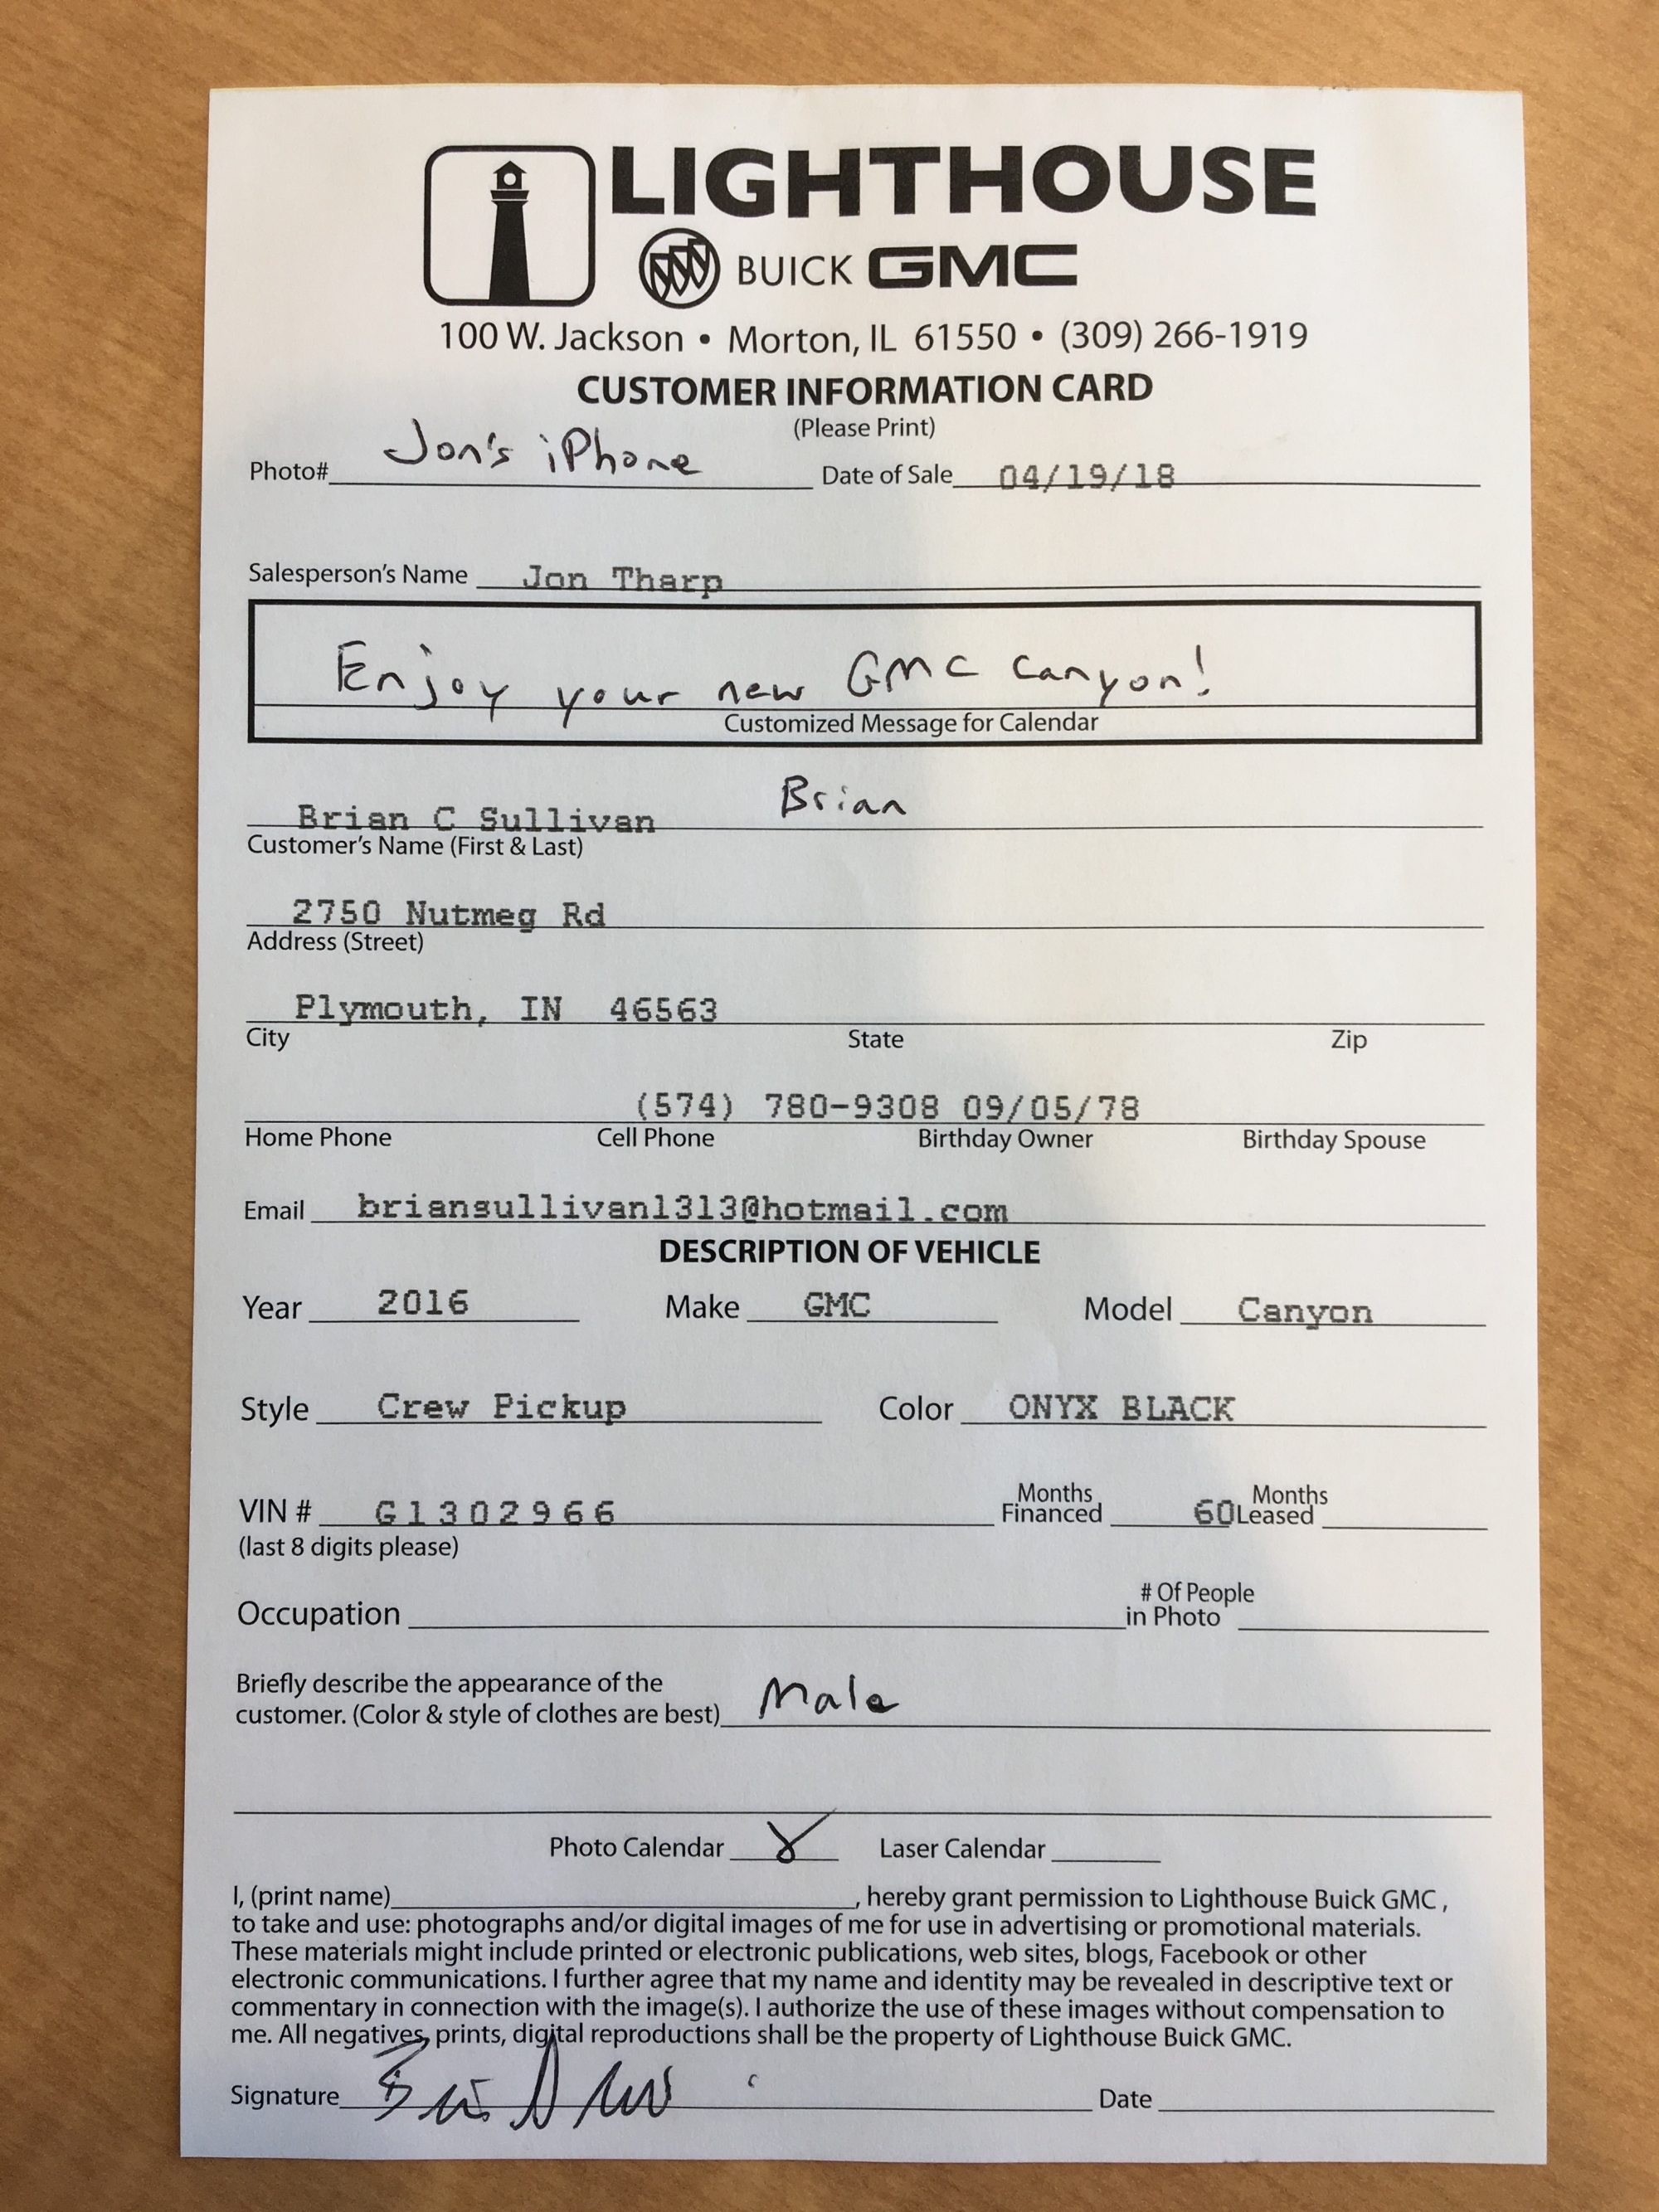 LIGHTHOUSE
BUICK GMC
100 W. Jackson • Morton, IL 61550 • (309) 266-1919
CUSTOMER INFORMATION CARD
(Please Print)
Photo# Jon's iPhone Date of Sale 04/19/18
Salesperson's Name Jon Tharp
Enjoy your new GMC Canyon!
Customized Message for Calendar
Brian C Sullivan Brian
Customer's Name (First & Last)
2750 Nutmeg Rd
Address (Street)
Plymouth, IN 46563
City State Zip
(574) 780-9308 09/05/78
Home Phone Cell Phone Birthday Owner Birthday Spouse
Email briansullivan1313@hotmail.com
DESCRIPTION OF VEHICLE
Year 2016 Make GMC Model Canyon
Style Crew Pickup Color ONYX BLACK
VIN # G1302966 Months Financed 60 Months Leased
(last 8 digits please)
Occupation # Of People in Photo
Briefly describe the appearance of the
customer. (Color & style of clothes are best) Male
Photo Calendar X Laser Calendar
I, (print name), hereby grant permission to Lighthouse Buick GMC,
to take and use: photographs and/or digital images of me for use in advertising or promotional materials.
These materials might include printed or electronic publications, web sites, blogs, Facebook or other
electronic communications. I further agree that my name and identity may be revealed in descriptive text or
commentary in connection with the image(s). I authorize the use of these images without compensation to
me. All negatives, prints, digital reproductions shall be the property of Lighthouse Buick GMC.
Signature Date